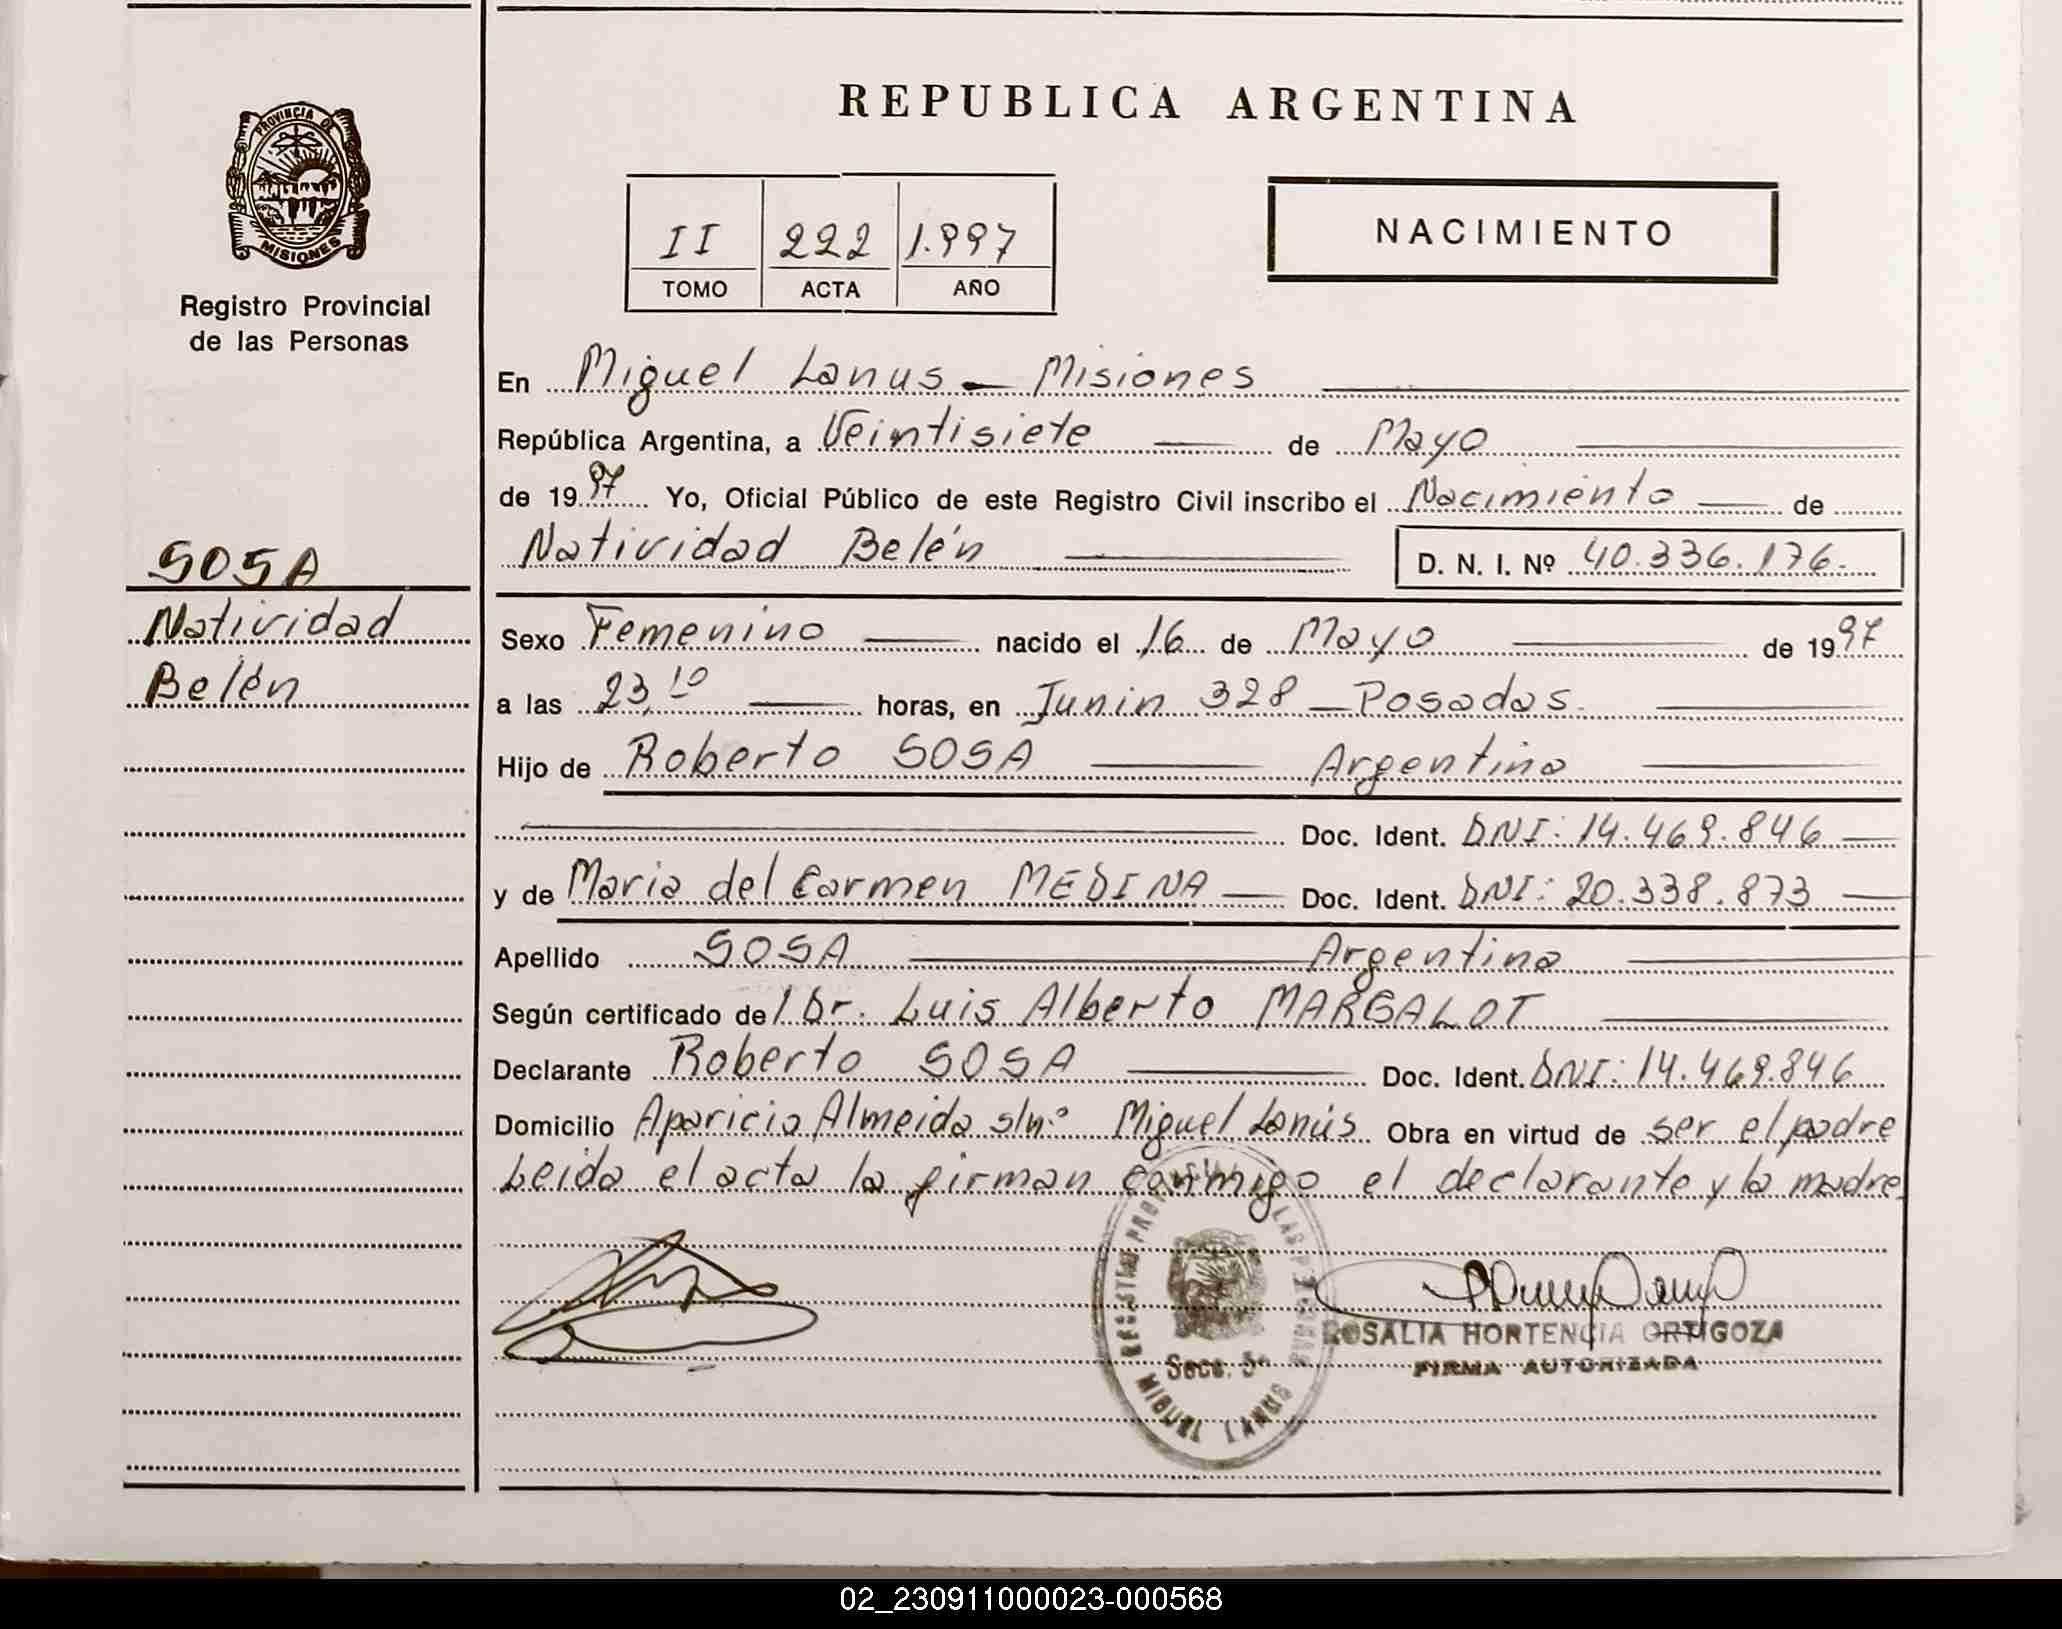 REPUBLICA ARGENTINA
PROVINCIA DE
MISIONES
Registro Provincial
de las Personas
II 222 1.997
TOMO ACTA AÑO
NACIMIENTO
SOSA
Natividad
Belén
En Miguel Lanus - Misiones
República Argentina, a Veintisiete de Mayo
de 1997 Yo, Oficial Público de este Registro Civil inscribo el Nacimiento de
Natividad Belén D. N. I. Nº 40.336.176.
Sexo Femenino nacido el 16 de Mayo de 1997
a las 23,10 horas, en Junin 328 - Posadas.
Hijo de Roberto SOSA Argentino
Doc. Ident. DNI: 14.469.846
y de Maria del Carmen MEDINA Doc. Ident. DNI: 20.338.873
Apellido SOSA Argentina
Según certificado del Dr. Luis Alberto MARGALOT
Declarante Roberto SOSA Doc. Ident. DNI: 14.469.846
Domicilio Aparicio Almeida s/nº Miguel Lanús Obra en virtud de ser el padre
Leida el acta la firman conmigo el declarante y la madre.
REGISTRO PROVINCIAL LAS PERSONAS
Secc. 5ª
MIGUEL LANUS
ROSALIA HORTENCIA ORTIGOZA
FIRMA AUTORIZADA
02_230911000023-000568